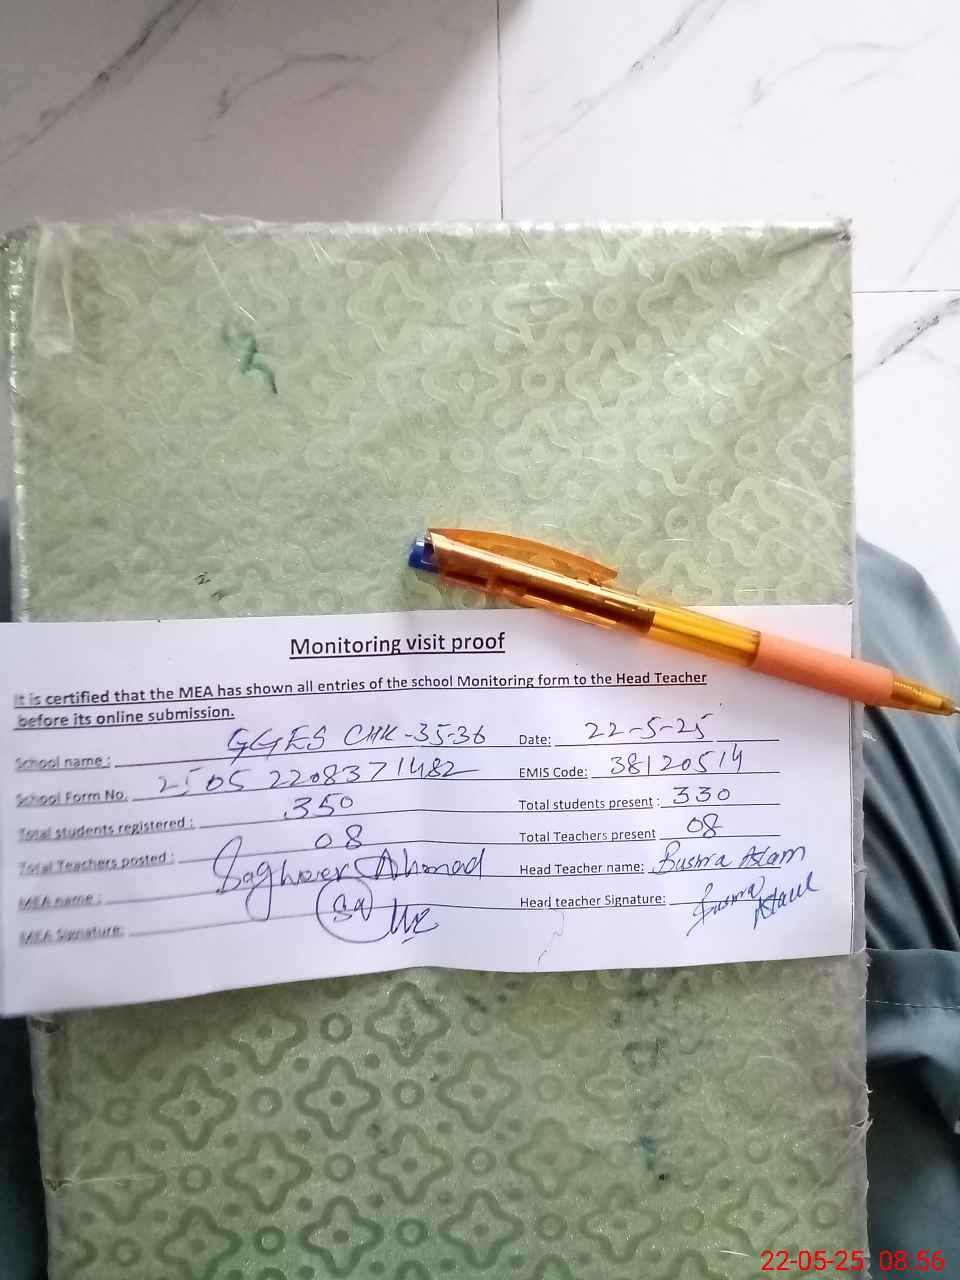 Monitoring visit proof
It is certified that the MEA has shown all entries of the school Monitoring form to the Head Teacher
before its online submission.
School name : GGES CHK-35-36 Date: 22-5-25
School Form No. 2505 2208371482 EMIS Code: 38120514
Total students registered : 350 Total students present : 330
Total Teachers posted : 08 Total Teachers present 08
MEA name : Sagheer Ahmad Head Teacher name: Bushra Aslam
MEA Signature: Head teacher Signature: Bushra
Aslam
22-05-25 08:56